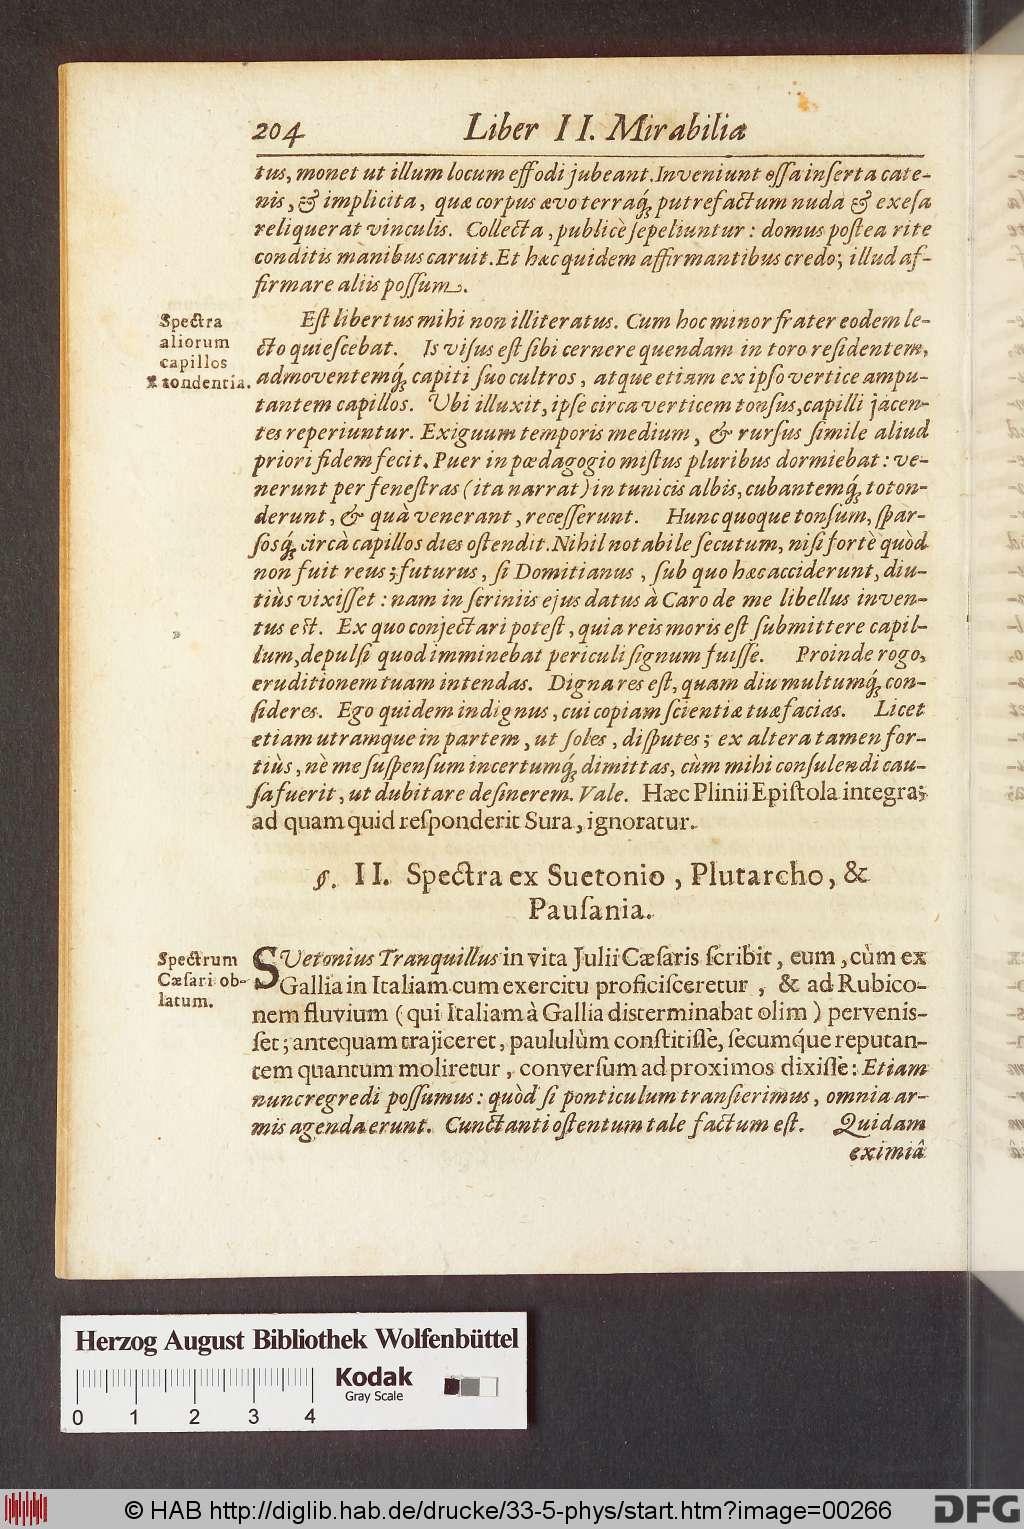 204 Liber II. Mirabilia
tus, monet ut illum locum effodi jubeant. Inveniunt ossa inserta cate-
nis, & implicita, quæ corpus ævo terraq́; putrefactum nuda & exesa
reliquerat vinculis. Collecta, publicè sepeliuntur: domus postea rite
conditis manibus caruit. Et hæc quidem affirmantibus credo; illud af-
firmare aliis possum.
Spectra
aliorum
capillos
tondentia.
Est libertus mihi non illiteratus. Cum hoc minor frater eodem le-
cto quiescebat. Is visus est sibi cernere quendam in toro residentem,
admoventemq́; capiti suo cultros, atque etiam ex ipso vertice ampu-
tantem capillos. Ubi illuxit, ipse circa verticem tonsus, capilli jacen-
tes reperiuntur. Exiguum temporis medium, & rursus simile aliud
priori fidem fecit. Puer in pædagogio mistus pluribus dormiebat: ve-
nerunt per fenestras (ita narrat) in tunicis albis, cubantemq́; toton-
derunt, & quà venerant, recesserunt. Hunc quoque tonsum, spar-
sosq́; circà capillos dies ostendit. Nihil notabile secutum, nisi fortè quòd
non fuit reus; futurus, si Domitianus, sub quo hæc acciderunt, diu-
tiùs vixisset: nam in scriniis ejus datus à Caro de me libellus inven-
tus est. Ex quo conjectari potest, quia reis moris est submittere capil-
lum, depulsi quod imminebat periculi signum fuisse. Proinde rogo,
eruditionem tuam intendas. Digna res est, quam diu multumq́; con-
sideres. Ego quidem indignus, cui copiam scientiæ tuæ facias. Licet
etiam utramque in partem, ut soles, disputes; ex altera tamen for-
tiùs, nè me suspensum incertumq́; dimittas, cùm mihi consulendi cau-
sa fuerit, ut dubitare desinerem. Vale. Hæc Plinii Epistola integra;
ad quam quid responderit Sura, ignoratur.
§. II. Spectra ex Suetonio, Plutarcho, &
Pausania.
Spectrum
Cæsari ob-
latum.
SUetonius Tranquillus in vita Julii Cæsaris scribit, eum, cùm ex
Gallia in Italiam cum exercitu proficisceretur, & ad Rubico-
nem fluvium (qui Italiam à Gallia disterminabat olim) pervenis-
set; antequam trajiceret, paululùm constitisse, secumq́ue reputan-
tem quantum moliretur, conversum ad proximos dixisse: Etiam
nunc regredi possumus: quòd si ponticulum transierimus, omnia ar-
mis agenda erunt. Cunctanti ostentum tale factum est. Quidam
eximiâ
Herzog August Bibliothek Wolfenbüttel
Kodak
Gray Scale
0 1 2 3 4
© HAB http://diglib.hab.de/drucke/33-5-phys/start.htm?image=00266
DFG